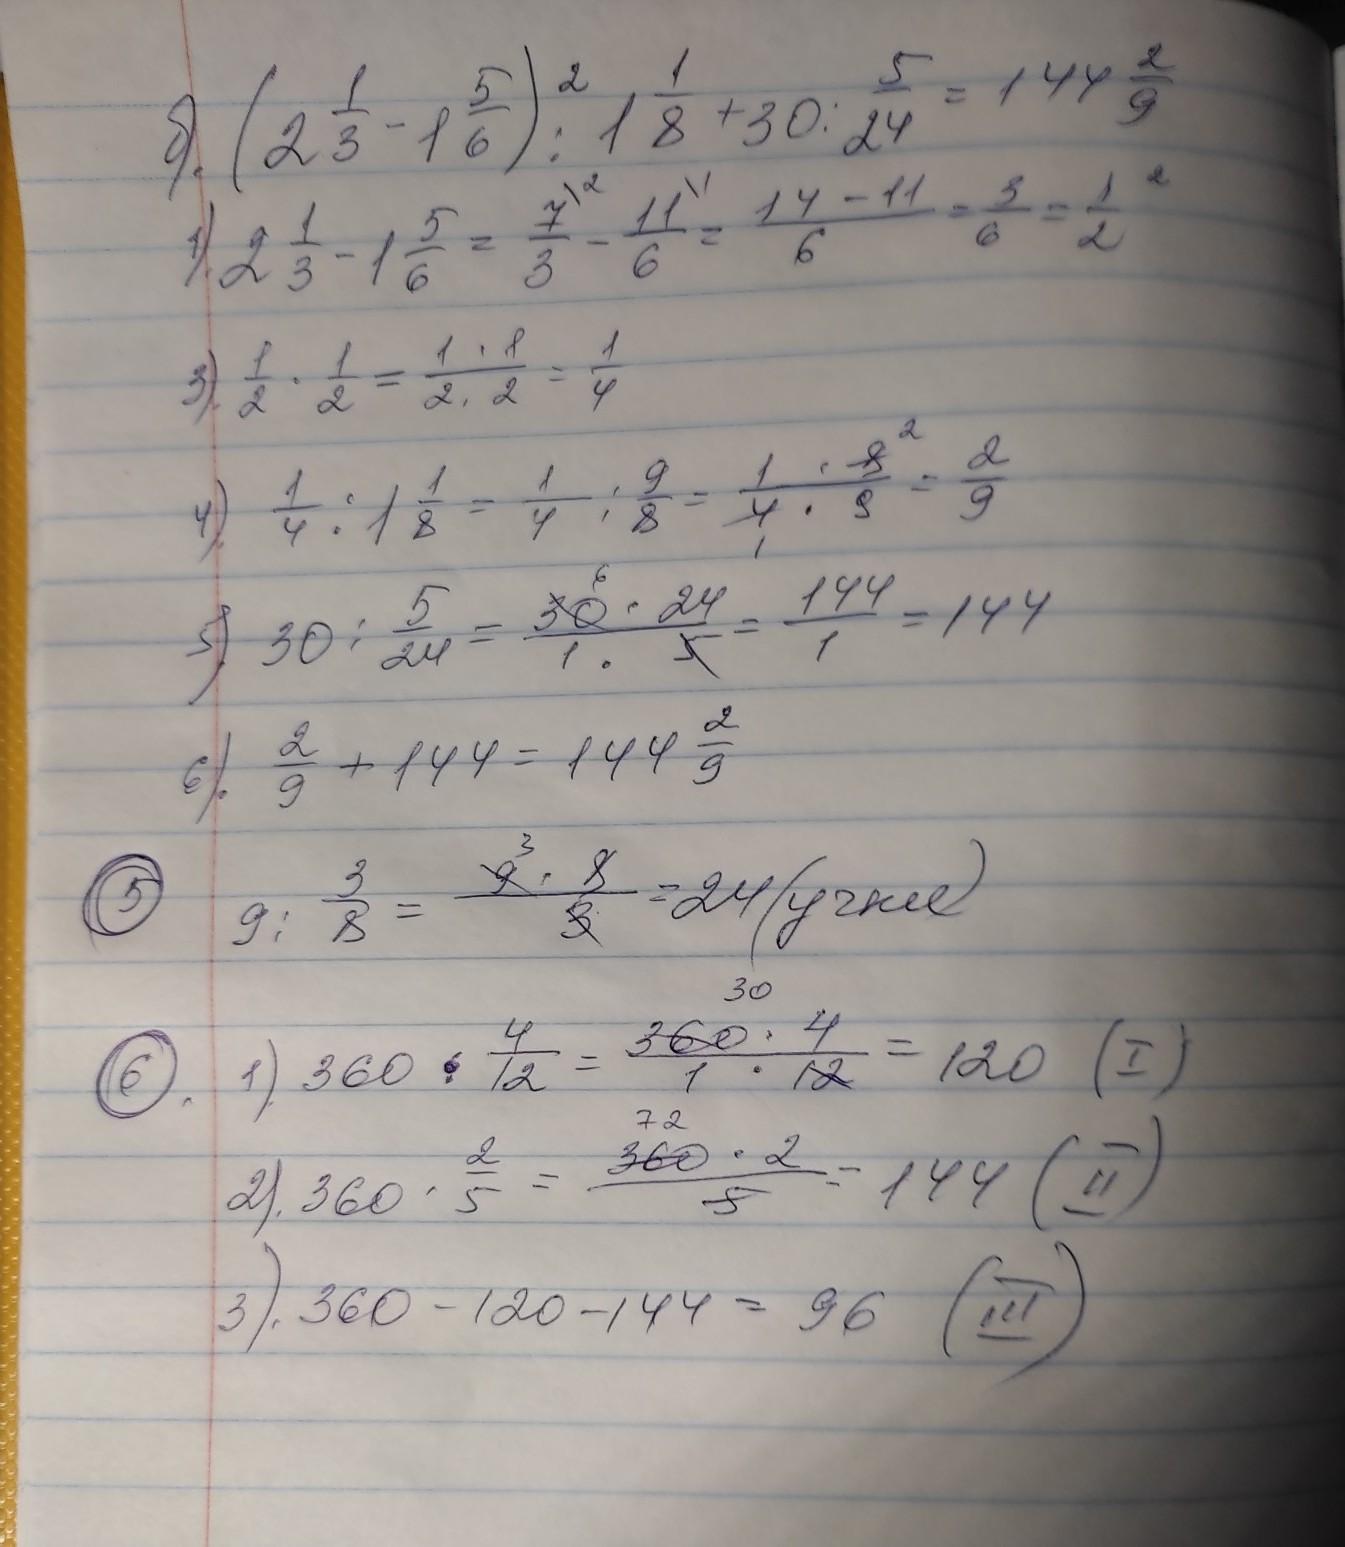 б). (2 1/3 - 1 5/6)² : 1 1/8 + 30 : 5/24 = 144 2/9
1). 2 1/3 - 1 5/6 = 7\2/3 - 11\1/6 = 14 - 11/6 = 3/6 = 1/2 ²
3). 1/2 · 1/2 = 1 · 1/2 · 2 = 1/4
4). 1/4 : 1 1/8 = 1/4 : 9/8 = 1 · 8 2/4 1 · 9 = 2/9
5). 30 : 5/24 = 30 6 · 24/1 · 5 = 144/1 = 144
6). 2/9 + 144 = 144 2/9
5 9 : 3/8 = 9 3 · 8/3 = 24
6. 1). 360 · 4/12 = 360 30 · 4/1 · 12 = 120 (I)
2). 360 · 2/5 = 360 72 · 2/5 = 144 (II)
3). 360 - 120 - 144 = 96 (III)